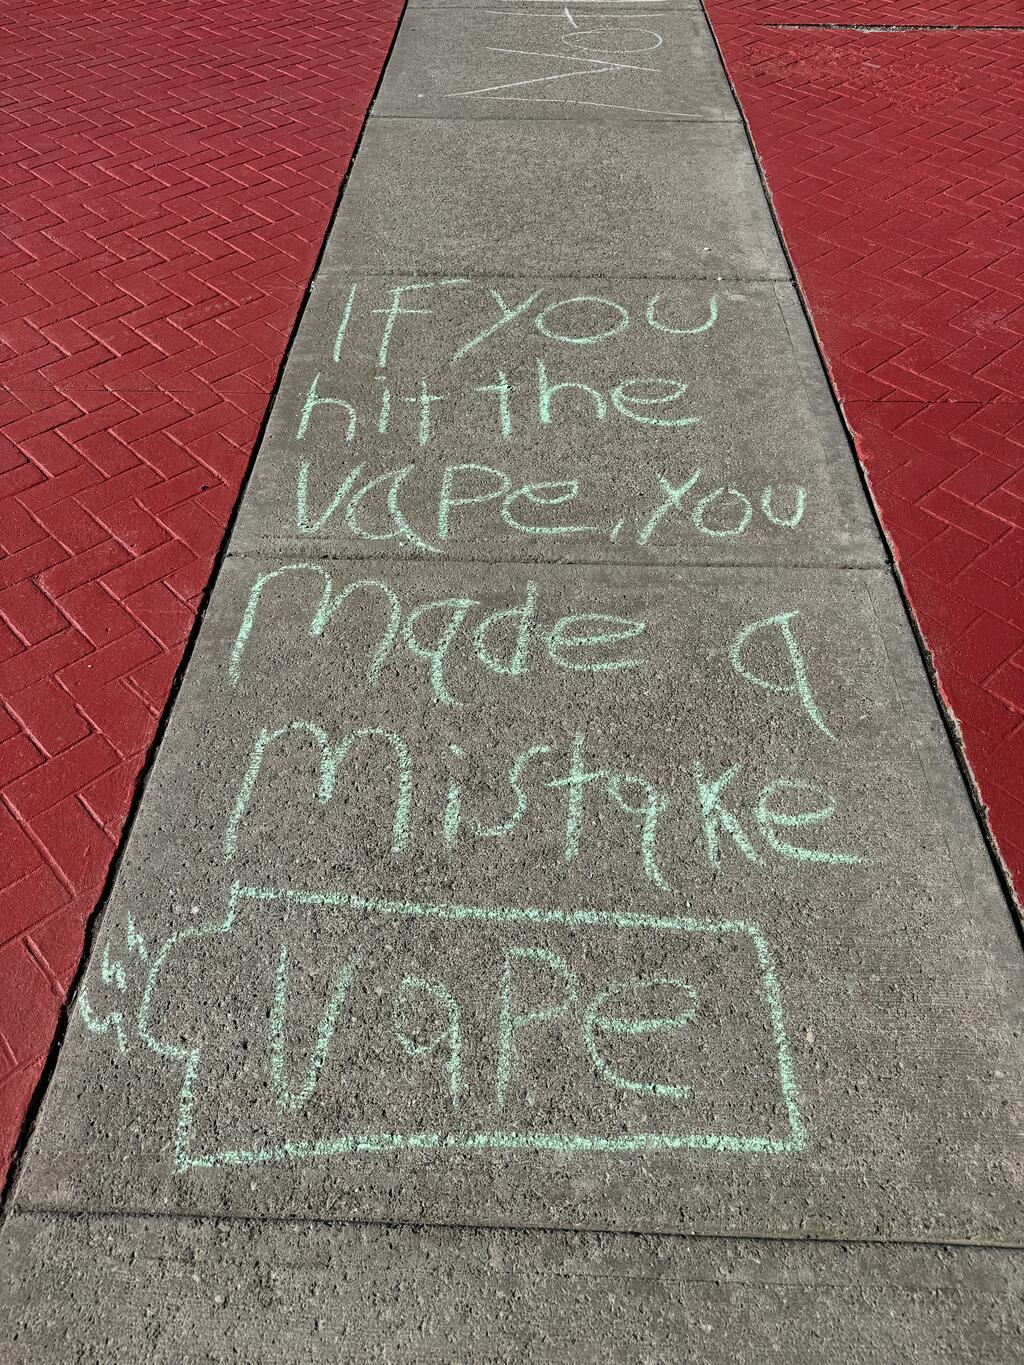 IF you
hit the
Vape, you
Made a
Mistake
Vape